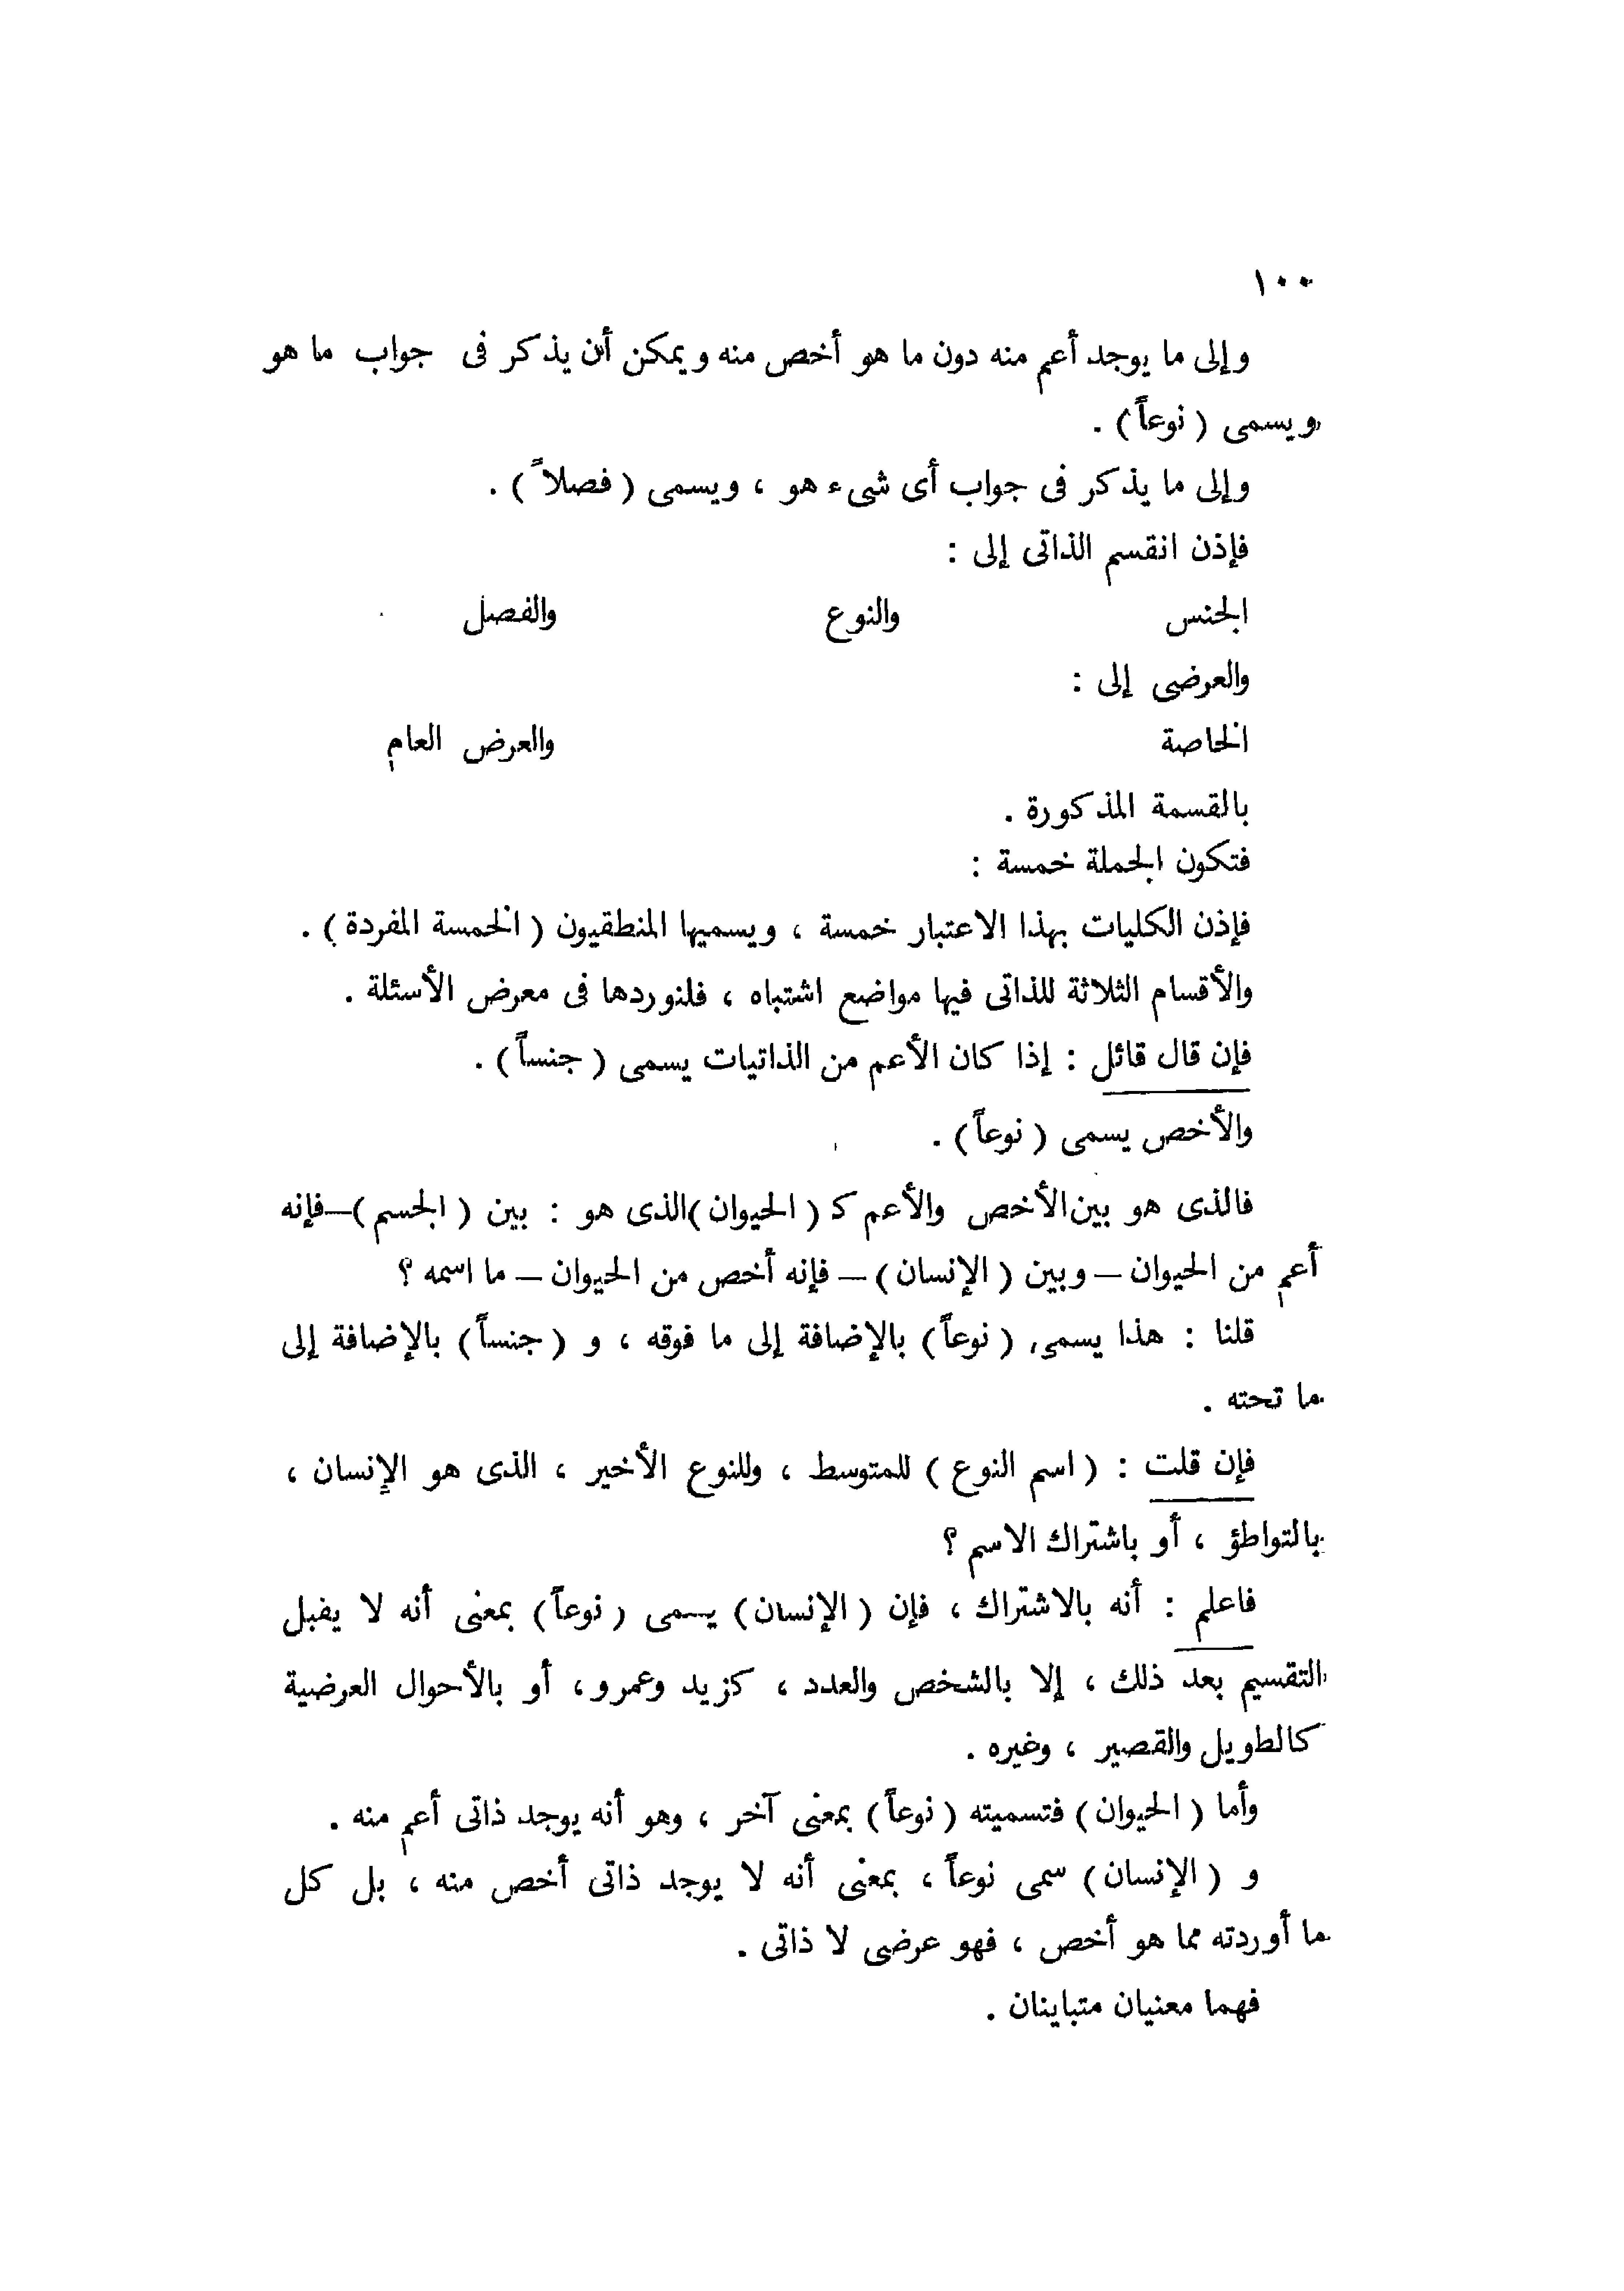 ١٠٠
وإلى ما يوجد أعم منه دون ما هو أخص منه ويمكن أن يذكر فى جواب ما هو
ويسمى ( نوعاً ) .
وإلى ما يذكر فى جواب أى شىء هو ، ويسمى ( فصلاً ) .
فإذن انقسم الذاتى إلى :
الجنس والنوع والفصل
والعرضى إلى :
الخاصة والعرض العام
بالقسمة المذكورة .
فتكون الجملة خمسة :
فإذن الكليات بهذا الاعتبار خمسة ، ويسميها المنطقيون ( الخمسة المفردة ) .
والأقسام الثلاثة للذاتى فيها مواضع اشتباه ، فلنوردها فى معرض الأسئلة .
فإن قال قائل : إذا كان الأعم من الذاتيات يسمى ( جنساً ) .
والأخص يسمى ( نوعاً ) .
فالذى هو بين الأخص والأعم كـ ( الحيوان ) الذى هو : بين ( الجسم ) – فإنه
أعم من الحيوان – وبين ( الإنسان ) – فإنه أخص من الحيوان – ما اسمه ؟
قلنا : هذا يسمى ( نوعاً ) بالإضافة إلى ما فوقه ، و ( جنساً ) بالإضافة إلى
ما تحته .
فإن قلت : ( اسم النوع ) للمتوسط ، وللنوع الأخير ، الذى هو الإنسان ،
بالتواطؤ ، أو باشتراك الاسم ؟
فاعلم : أنه بالاشتراك ، فإن ( الإنسان ) يسمى ( نوعاً ) بمعنى أنه لا يقبل
التقسيم بعد ذلك ، إلا بالشخص والعدد ، كزيد وعمرو ، أو بالأحوال العرضية
كالطويل والقصير ، وغيره .
وأما ( الحيوان ) فتسميته ( نوعاً ) بمعنى آخر ، وهو أنه يوجد ذاتى أعم منه .
و ( الإنسان ) سمى نوعاً ، بمعنى أنه لا يوجد ذاتى أخص منه ، بل كل
ما أوردته مما هو أخص ، فهو عرضى لا ذاتى .
فهما معنيان متباينان .